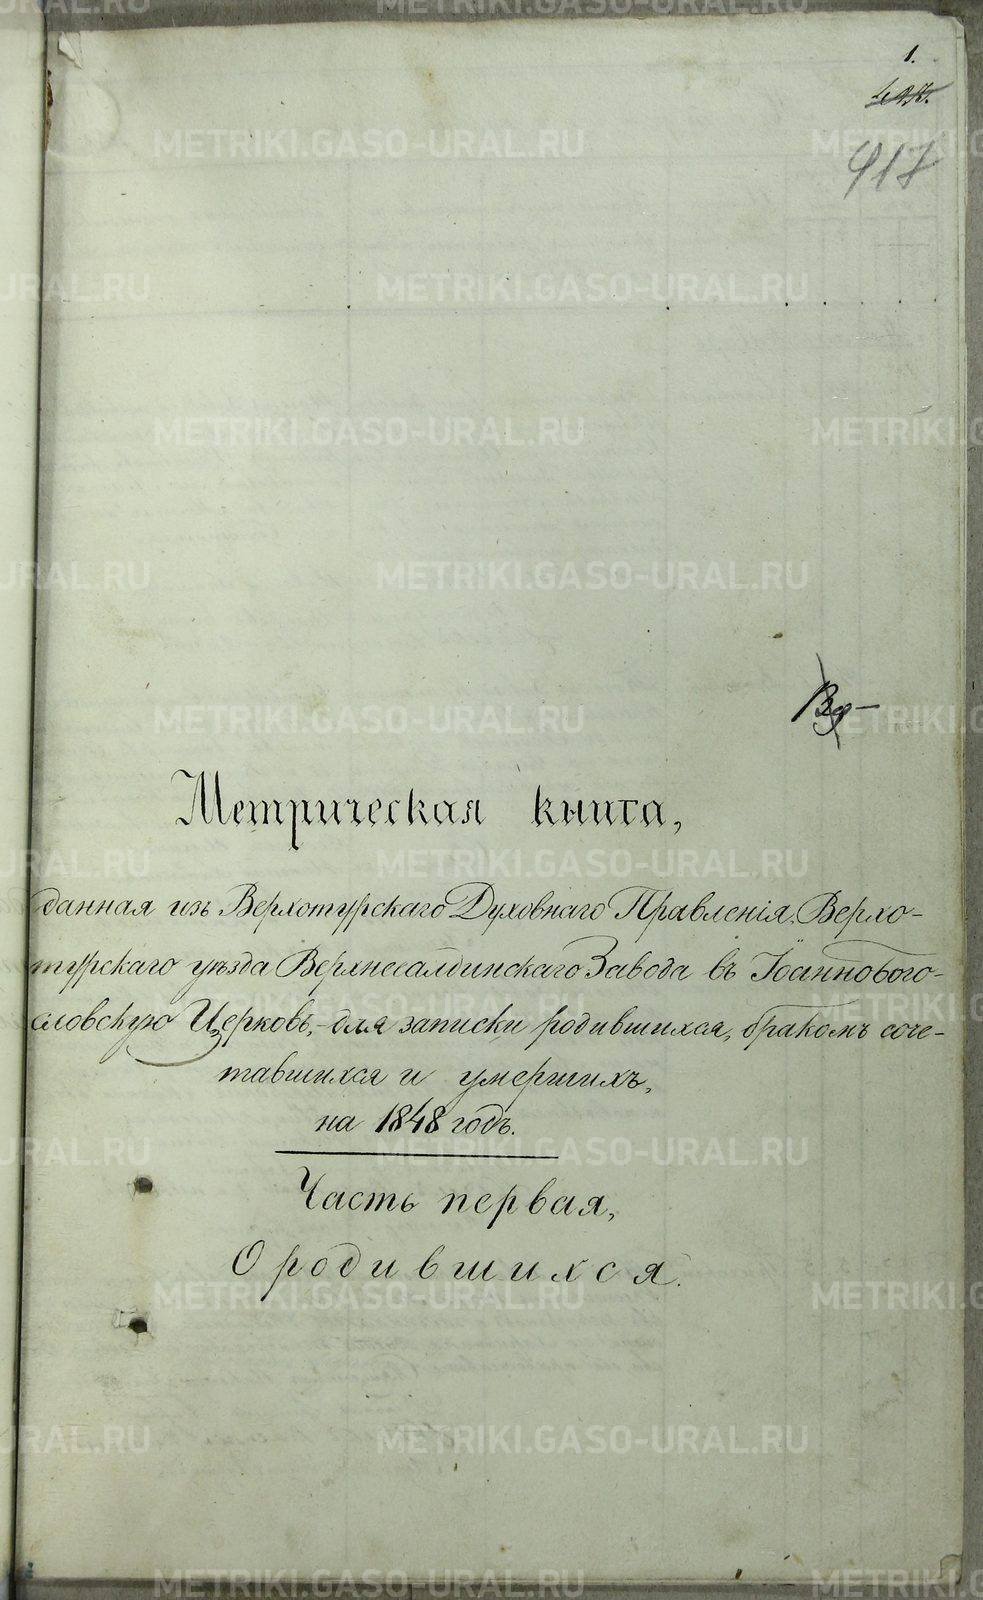 1.
917
Метрическая книга,
данная изъ Верхотурскаго Духовнаго Правленія, Верхо-
турскаго уѣзда Верхнесалдинскаго Завода въ Іоаннобого-
словскую Церковь, для записки родившихся, бракомъ соче-
тавшихся и умершихъ,
на 1848 годъ.
Часть первая,
О родившихся.
METRIKI.GASO-URAL.RU